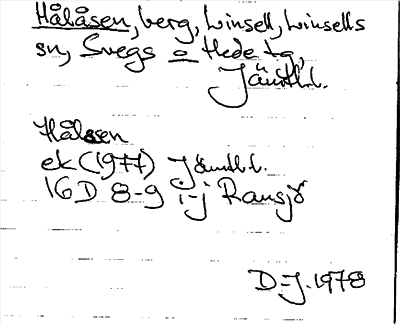 Hålåsen, berg, Linsell, Linsells
sn, Svegs o Hede tg,
Jämtl.l.
Hålåsen
ek (1977) Jämtl.l.
16D 8-9 i-j Ransjö
D-J. 1978